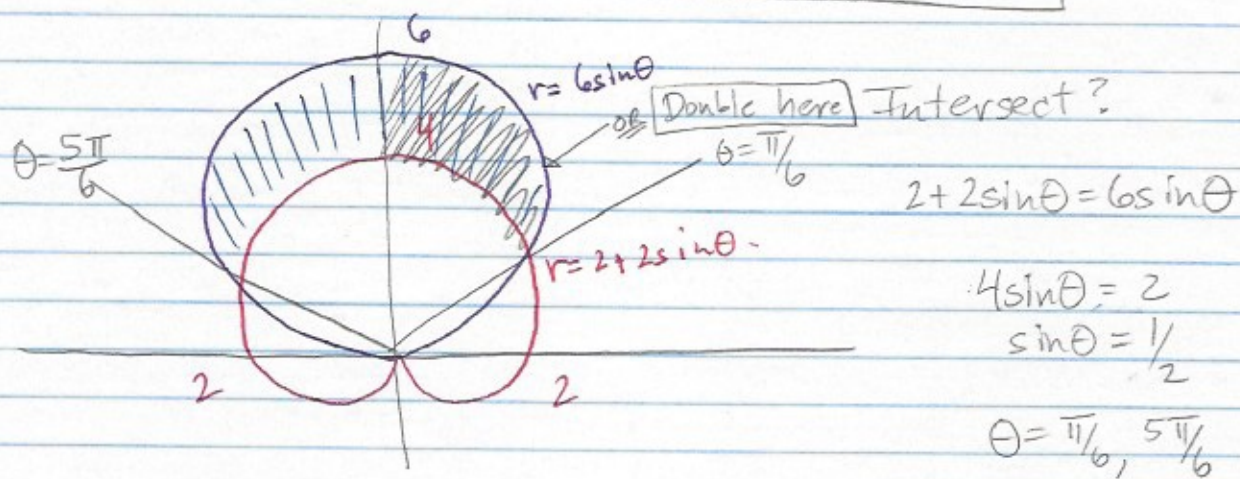 6
r = 6sinθ
OR Double here Intersect?
4
θ = 5π/6
θ = π/6
2 + 2sinθ = 6sinθ
r = 2 + 2sinθ.
4sinθ = 2
sinθ = 1/2
2
2
θ = π/6, 5π/6